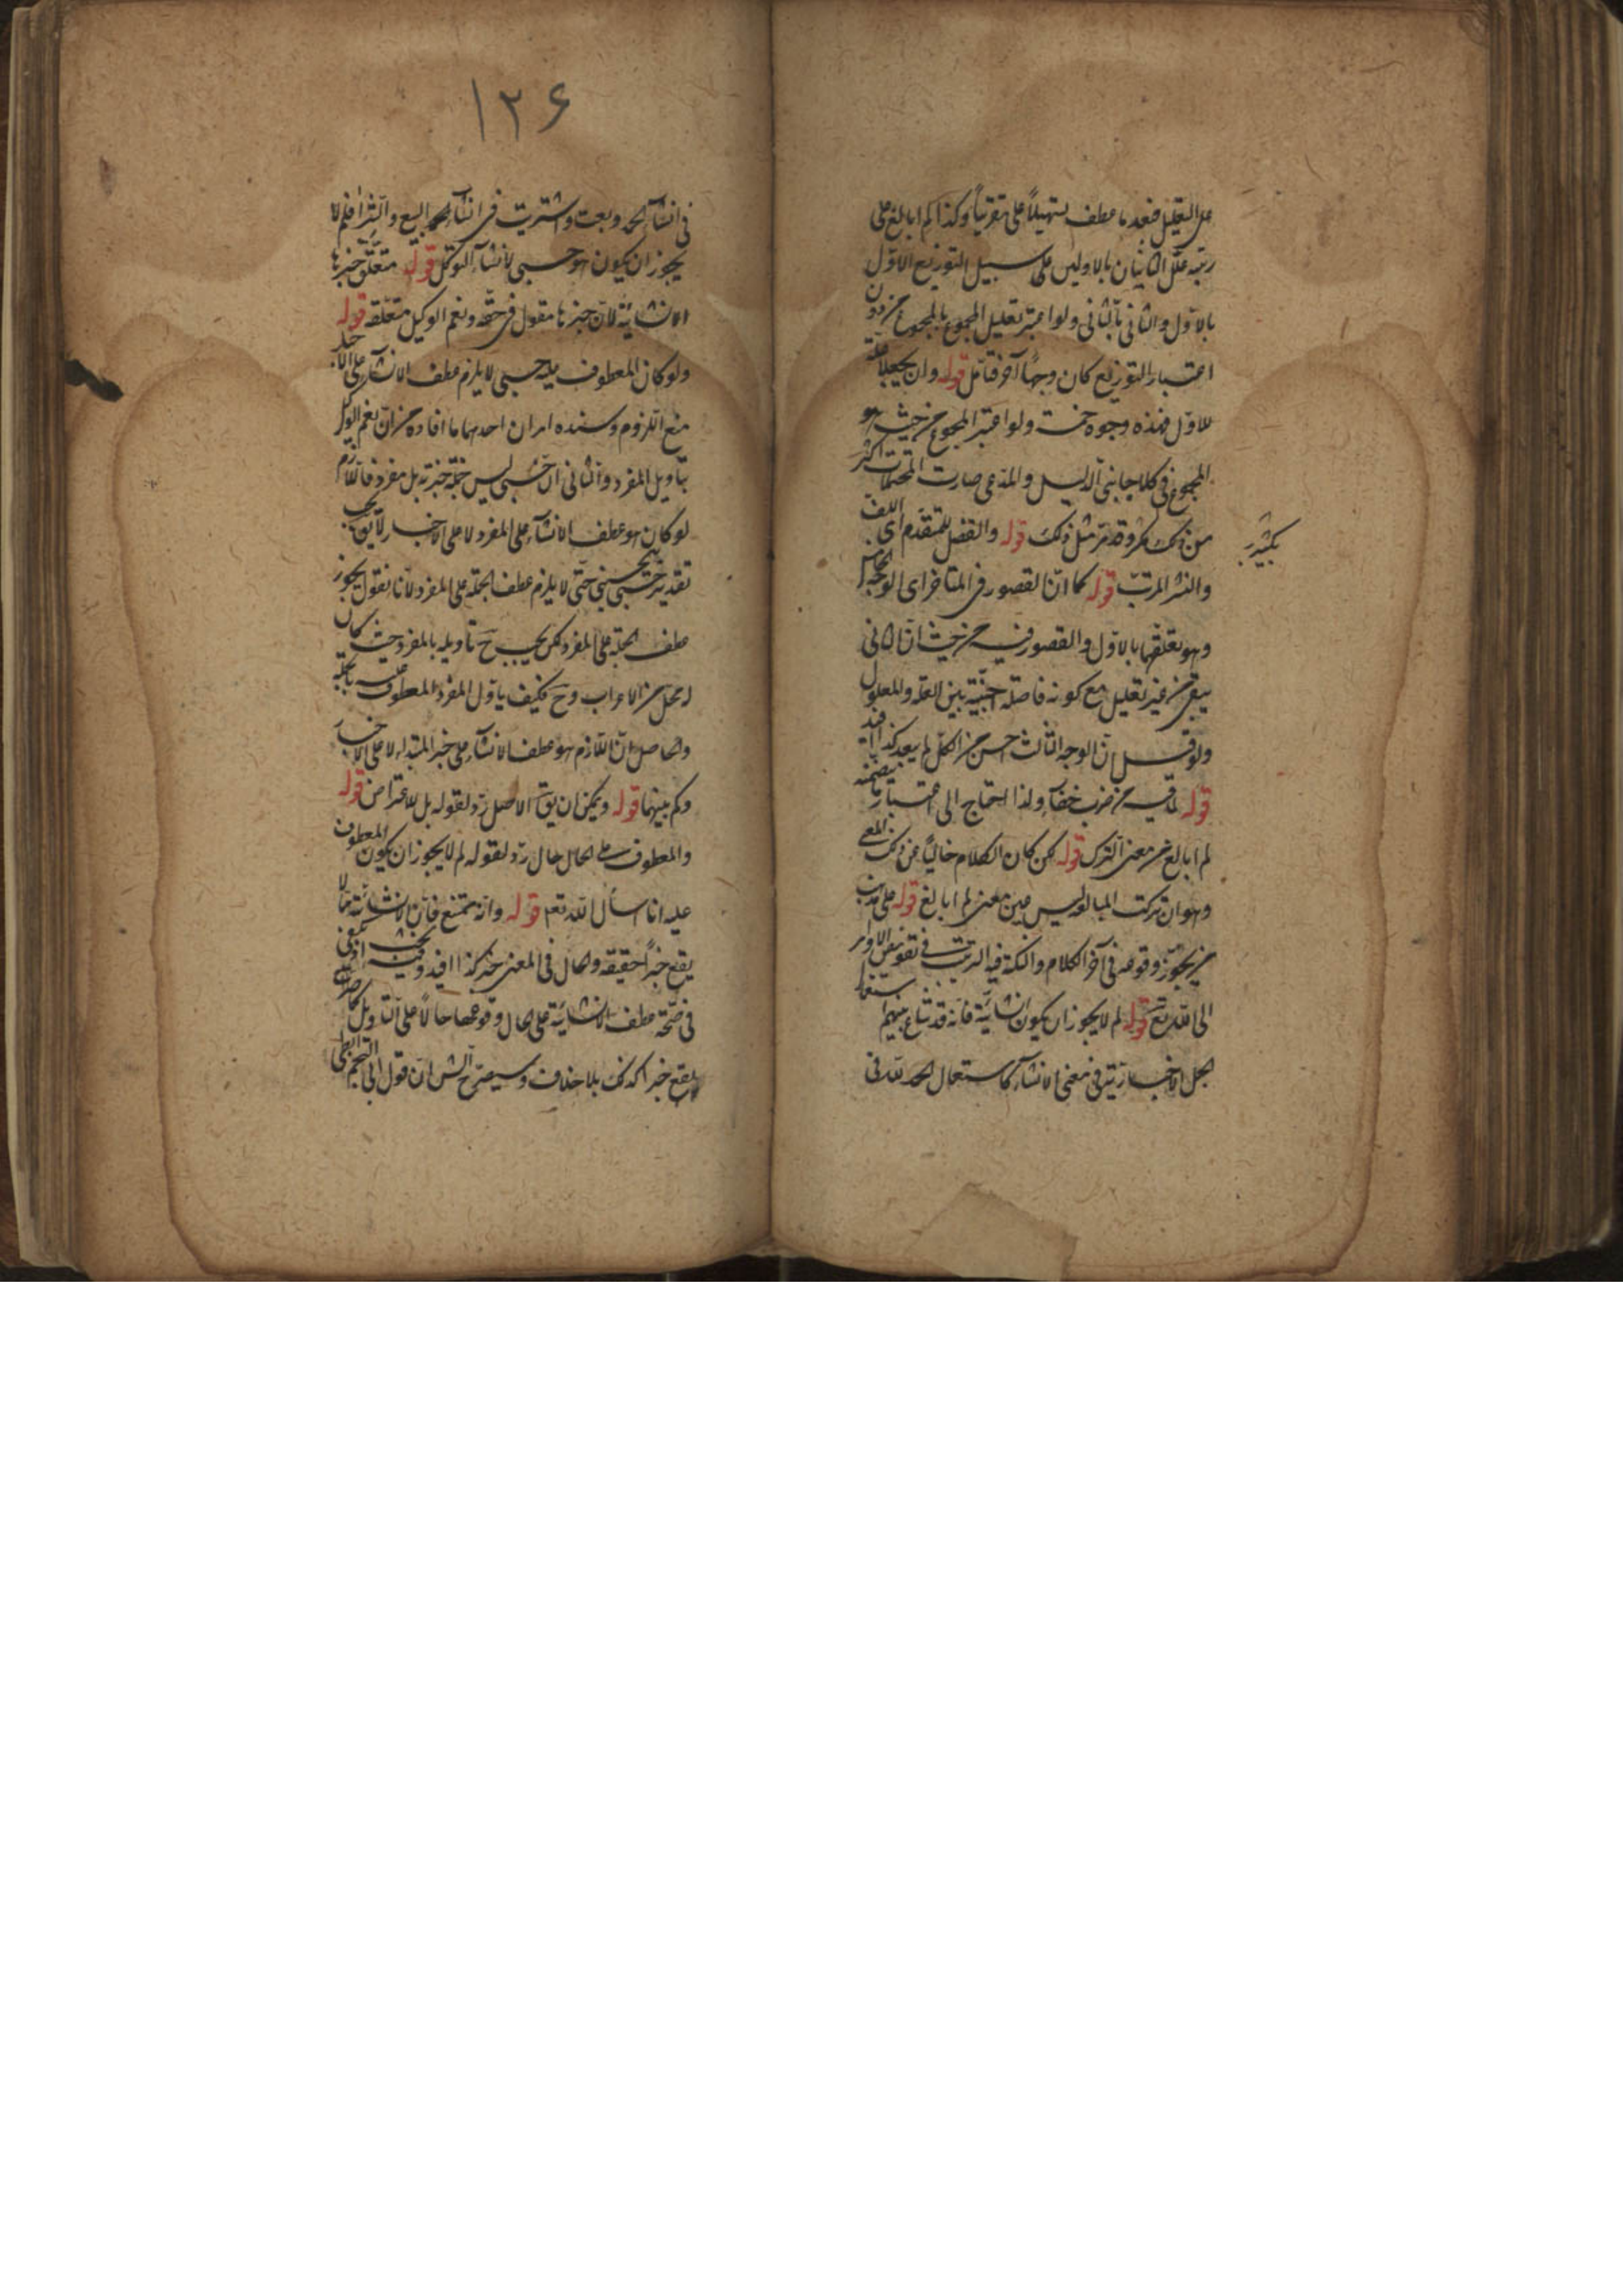 على التعليل فبعد ما عطف تسهيلاً على تقريباً وكذا لم ابالغ على
رتبه علل الثانيان بالاولين على سبيل التوزيع الاول
بالاول والثانى بالثانى ولو اعتبر تعليل المجموع بالمجموع من دون
اعتبار التوزيع كان وجهاً آخر فتأمل قوله وان يجعلا علة
للاول فهذه وجوه خمسة ولو اعتبر المجموع من حيث هو
المجموع فى كلا جانبى الدليل والمدعى صارت المحتملات اكثر
من ذلك وقد مر مثل ذلك قوله والفضل للمتقدم اى اللف
والنشر المرتب قوله كما ان القصور فى المتاخر اى الوجه الخامس
وهو تعلقهما بالاول والقصور فيه من حيث ان الثانى
يبقى من غير تعليل مع كونه فاصلة اجنبية بين العلة والمعلول
ولو قيل ان الوجه الثالث احسن من الكل لم يبعد كذا افيد
قوله لما فيه من ضرب خفاء ولذا احتاج الى اعتبار تضمنه
لم ابالغ من معنى الترك قوله لكن كان الكلام خالياً عن ذلك المعنى
وهو ان تركت المبالغة ليس عين معنى لم ابالغ قوله على مذهب
من يجوز وقوعه فى آخر الكلام والنكتة فيه الترتيب فى تفويض الامر
الى الله تع قوله لم لا يجوز ان يكون انشائية فانه قد شاع بينهم استعمال
الجمل الاخبارية فى معنى الانشاء كاستعمال الحمد لله فى
بكثير
١٢۶
فى انشاء الحمد وبعت واشتريت فى انشاء البيع والشراء فلم لا
يجوز ان يكون هو حسبى لانشاء التوكل قوله متعلق خبرها
الانشائية لان خبرها مقول فى حقه ونعم الوكيل متعلقه قوله
ولو كان المعطوف عليه حسبى لا يلزم عطف الانشاء على الاخبار
منع اللزوم وسنده امران احدهما ما افاده من ان نعم الوكيل
بتأويل المفرد والثانى ان حسبى ليس جملة خبرية بل مفرد فاللازم
لو كان هو عطف الانشاء على المفرد لا على الاخبار لا يق يجب
تقدير حسبى بيحسبنى حتى لا يلزم عطف الجملة على المفرد لانا نقول يجوز
عطف الجملة على المفرد لكن يجب ح تاويله بالمفرد حيث كان
له محل من الاعراب وح فكيف ياول المفرد المعطوف عليه بالجملة
والحاصل ان اللازم هو عطف الانشاء على خبر المبتداء لا على الاخبار
وكم بينهما قوله ويمكن ان يق الاصل رد لقوله بل للاعتراض قوله
والمعطوف على الحال حال رد لقوله لم لا يجوز ان يكون المعطوف
عليه انا اسأل الله تع قوله وانه ممتنع فان الانشائية كما لا
يقع خبراً حقيقة والحال فى المعنى خبر كذا افيد وفيه بحث
فى صحة عطف الانشائية على الحال وقوعها حالاً على التاويل كما
يقع خبرا كذلك بلا خلاف وسيصرح الش ان قول ابى النجم